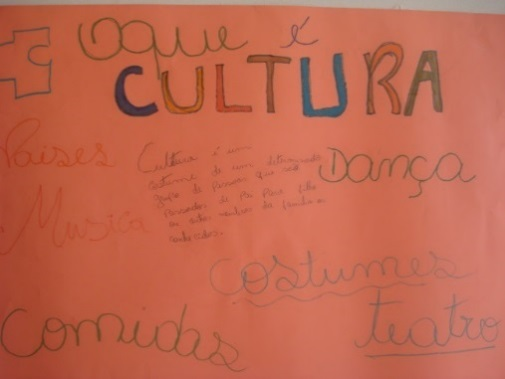 O que é
CULTURA
Paises
Cultura é um
costume de um determinado
grupo de Pessoas que são
Passados de Pai Para filho
ou outros membros da família e
conhecidos.
Dança
Musica
Costumes
Comidas
teatro